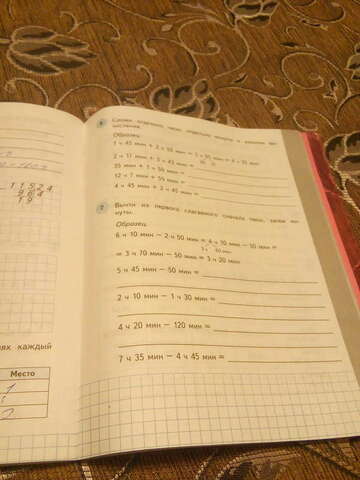 6 Сложи отдельно часы, отдельно минуты и
числения.
Образец.
1 ч 45 мин + 2 ч 50 мин =
2 ч 17 мин + 3 ч 45 мин =
35 мин + 1 ч 50 мин =
12 ч 7 мин + 59 мин =
4 ч 45 мин + 2 ч 45 мин =
7 Вычти из первого слагаемого сначала часы, затем ми-
нуты.
Образец.
6 ч 10 мин − 2 ч 50 мин = 4 ч 10 мин − 50 мин =
3 ч 60 мин
= 3 ч 70 мин − 50 мин = 3 ч 20 мин
5 ч 45 мин − 50 мин =
2 ч 10 мин − 1 ч 30 мин =
4 ч 20 мин − 120 мин =
7 ч 35 мин − 4 ч 45 мин =
каждый
Место
1